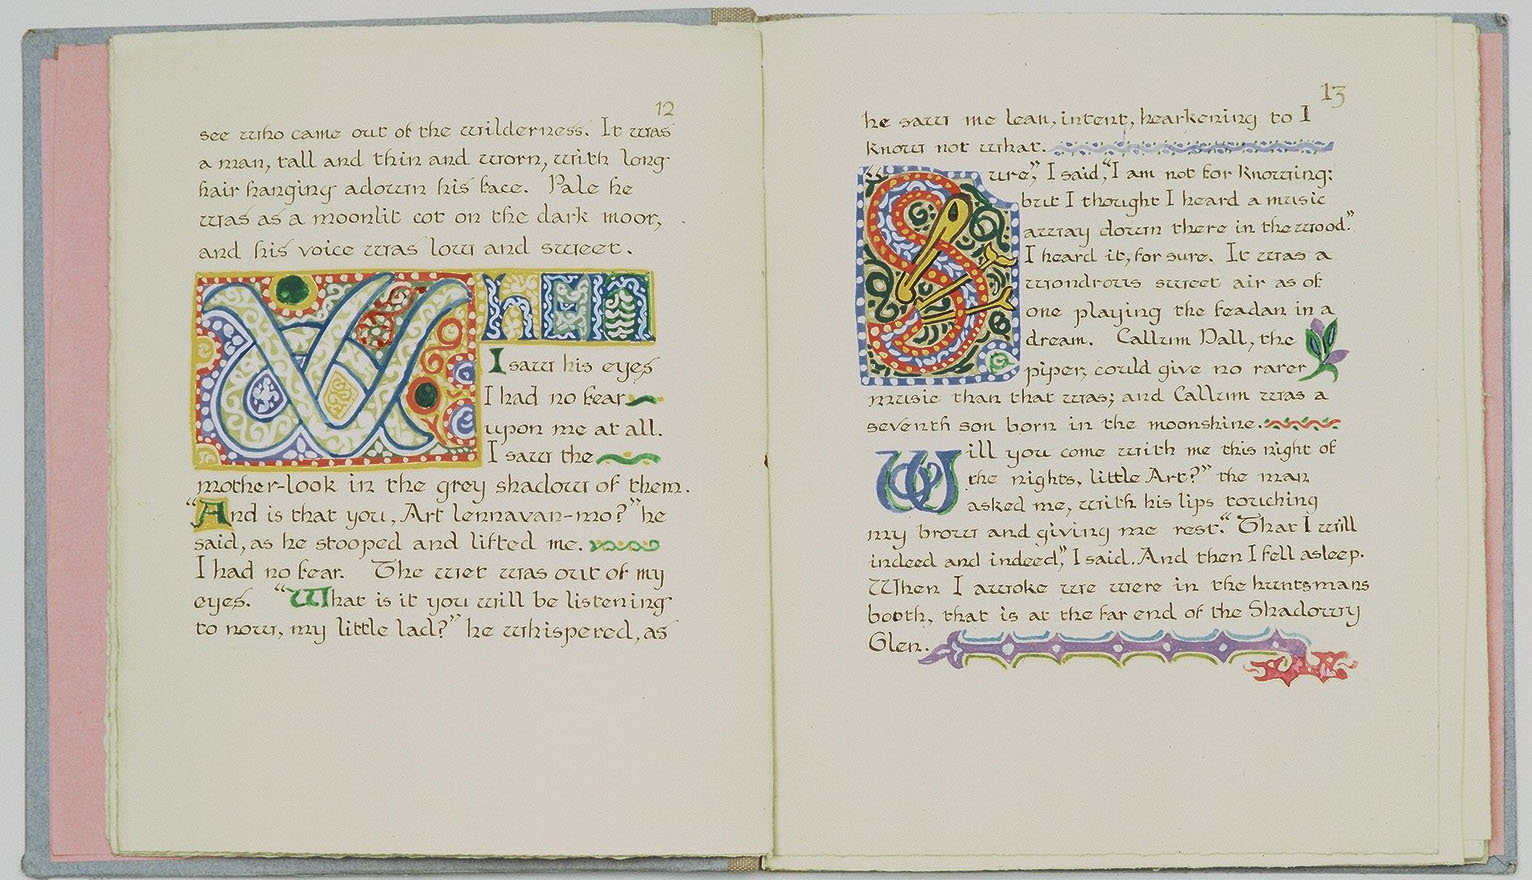 12
see who came out of the wilderness. It was
a man, tall and thin and worn, with long
hair hanging adown his face. Pale he
was as a moonlit cot on the dark moor,
and his voice was low and sweet.
When
I saw his eyes
I had no fear
upon me at all.
I saw the
mother-look in the grey shadow of them.
"And is that you, Art lennavan-mo?" he
said, as he stooped and lifted me.
I had no fear. The wet was out of my
eyes. "What is it you will be listening
to now, my little lad?" he whispered, as
13
he saw me lean, intent, hearkening to I
know not what.
"Sure," I said, "I am not for knowing:
but I thought I heard a music
away down there in the wood."
I heard it, for sure. It was a
wondrous sweet air as of
one playing the feadan in a
dream. Callum Dall, the
piper, could give no rarer
music than that was; and Callum was a
seventh son born in the moonshine.
Will you come with me this night of
the nights, little Art?" the man
asked me, with his lips touching
my brow and giving me rest. "That I will
indeed and indeed," I said. And then I fell asleep.
When I awoke we were in the huntsmans
booth, that is at the far end of the Shadowy
Glen.